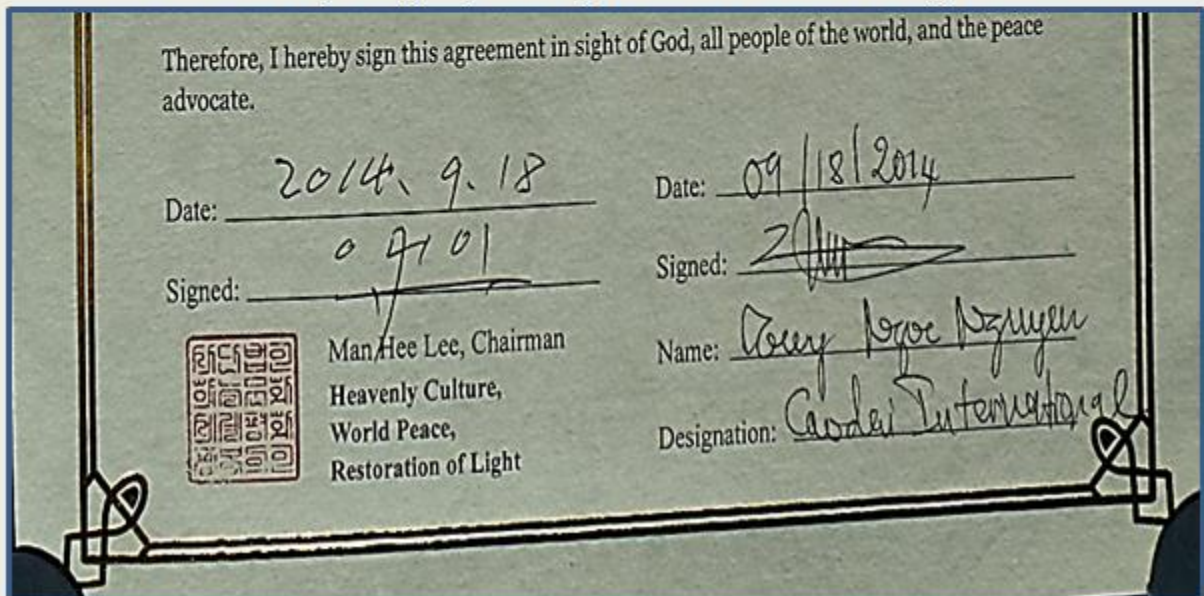 Therefore, I hereby sign this agreement in sight of God, all people of the world, and the peace
advocate.
Date: 2014. 9. 18
Signed:
Man Hee Lee, Chairman
Heavenly Culture,
World Peace,
Restoration of Light
Date: 09/18/2014
Signed:
Name: Ngoc Nguyen
Designation: Caodai International